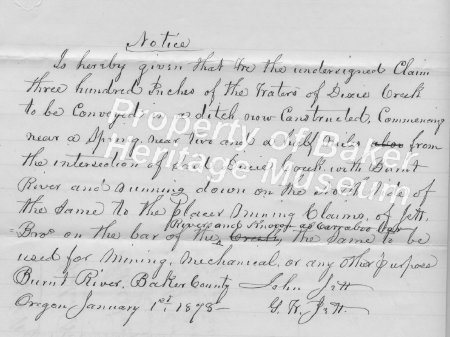 Notice
Is hereby given that We the undersigned Claim
three hundred Inches of the Waters of Dixie Creek
to be Conveyed in a ditch now Constructed, Commencing
near a Spring near two and a half miles from
the intersection of said Dixie Creek with Burnt
River and running down on the side of
the Same to the Placer Mining Claims, of Jett
River and Known as
Bros on the bar of the Creek, the Same to be
used for Mining, Mechanical, or any other purpose
Burnt River, Baker County John Jett
Oregon January 1st, 1878 — G. W. Jett.
Property of Baker
Heritage Museum